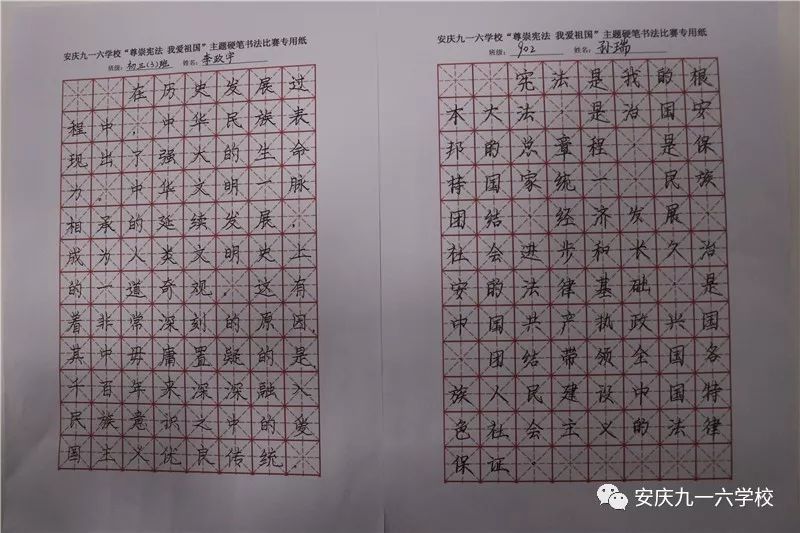 安庆九一六学校“尊崇宪法 我爱祖国”主题硬笔书法比赛专用纸
班级：初三(3)班 姓名：李政宇
在历史发展过
程中，中华民族表
现出了强大的生命
力，中华文明一脉
相承的延续发展，
成为人类文明史上
的一道奇观，这有
着非常深刻的原因，
其中毋庸置疑的是，
千百年来深深融入
民族意识之中的爱
国主义优良传统。
安庆九一六学校“尊崇宪法 我爱祖国”主题硬笔书法比赛专用纸
班级：902 姓名：孙瑞
宪法是我的根
本大法，是治国安
邦的总章程，是保
持国家统一、民族
团结、经济发展、
社会进步和长久治
安的法律基础，是
中国共产执政兴国
、团结带领全国各
族人民建设中国特
色社会主义的法律
保证。
安庆九一六学校